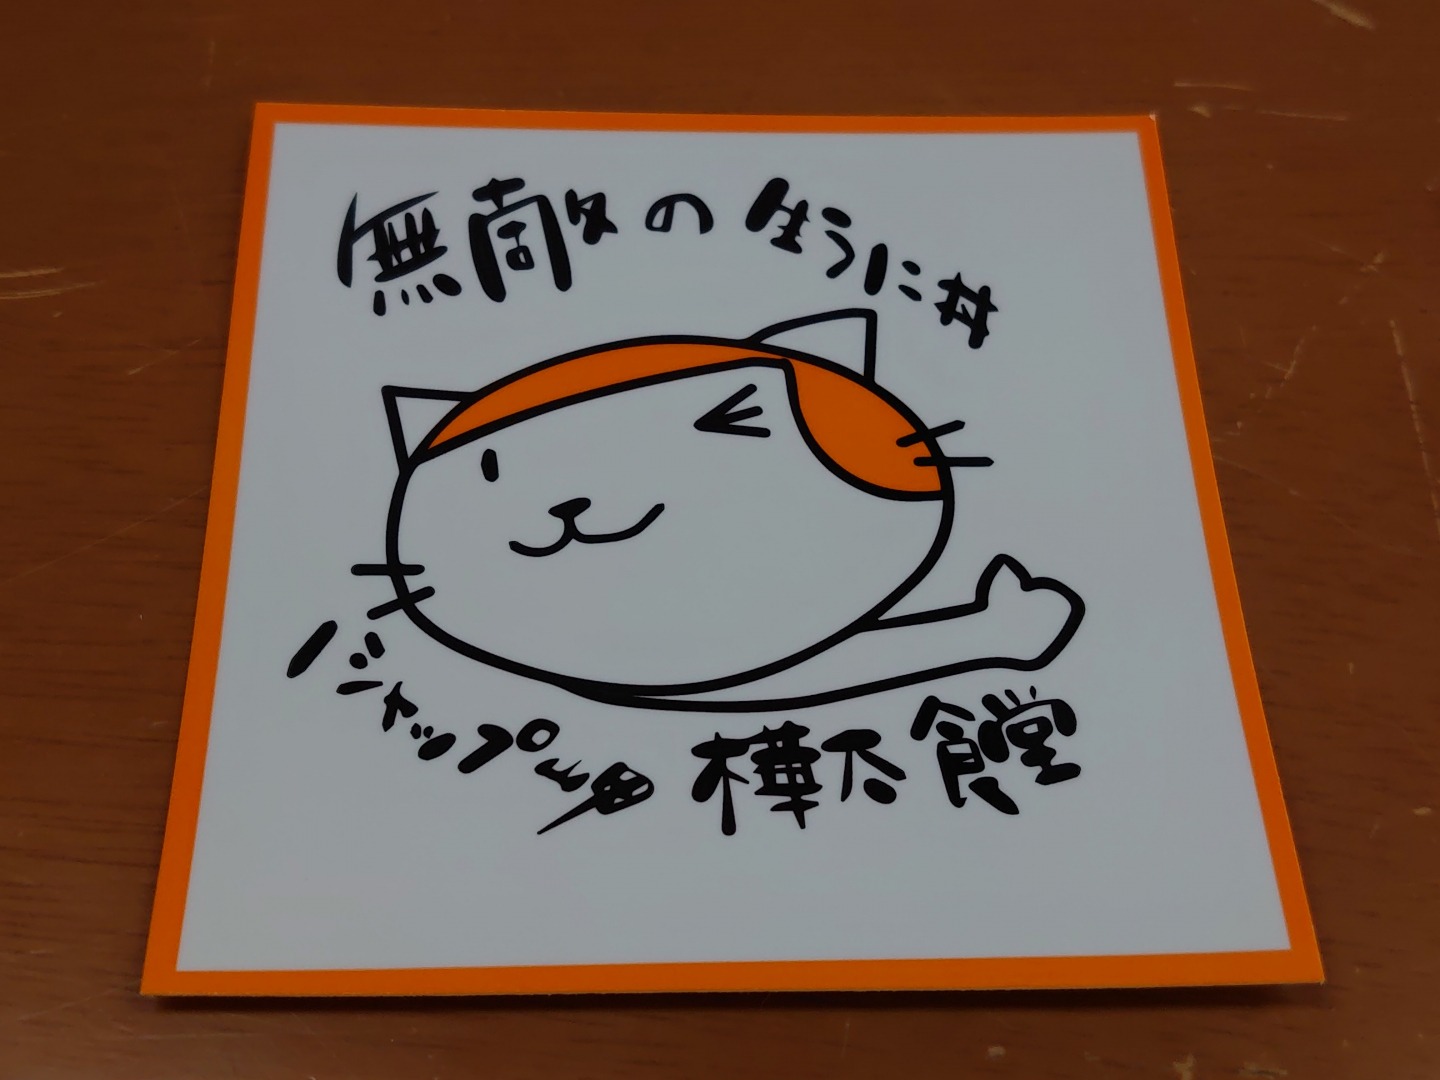 無敵の生うに丼
ノシャップ岬 樺太食堂